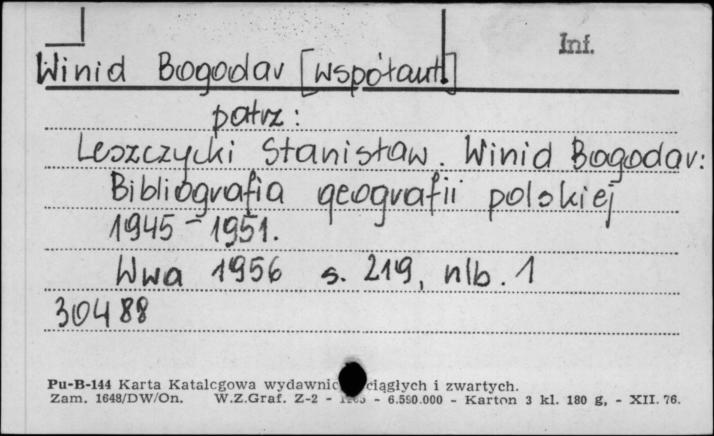 Inf.
Winid Bogodar [współaut.]
patrz:
Leszczycki Stanisław. Winid Bogodar:
Bibliografia geografii polskiej
1945-1951.
Wwa 1956 s. 219, nlb. 1
30488
Pu-B-144 Karta Katalogowa wydawnic ciągłych i zwartych.
Zam. 1648/DW/On. W.Z.Graf. Z-2 - - 6.590.000 - Karton 3 kl. 180 g, - XII. 76.